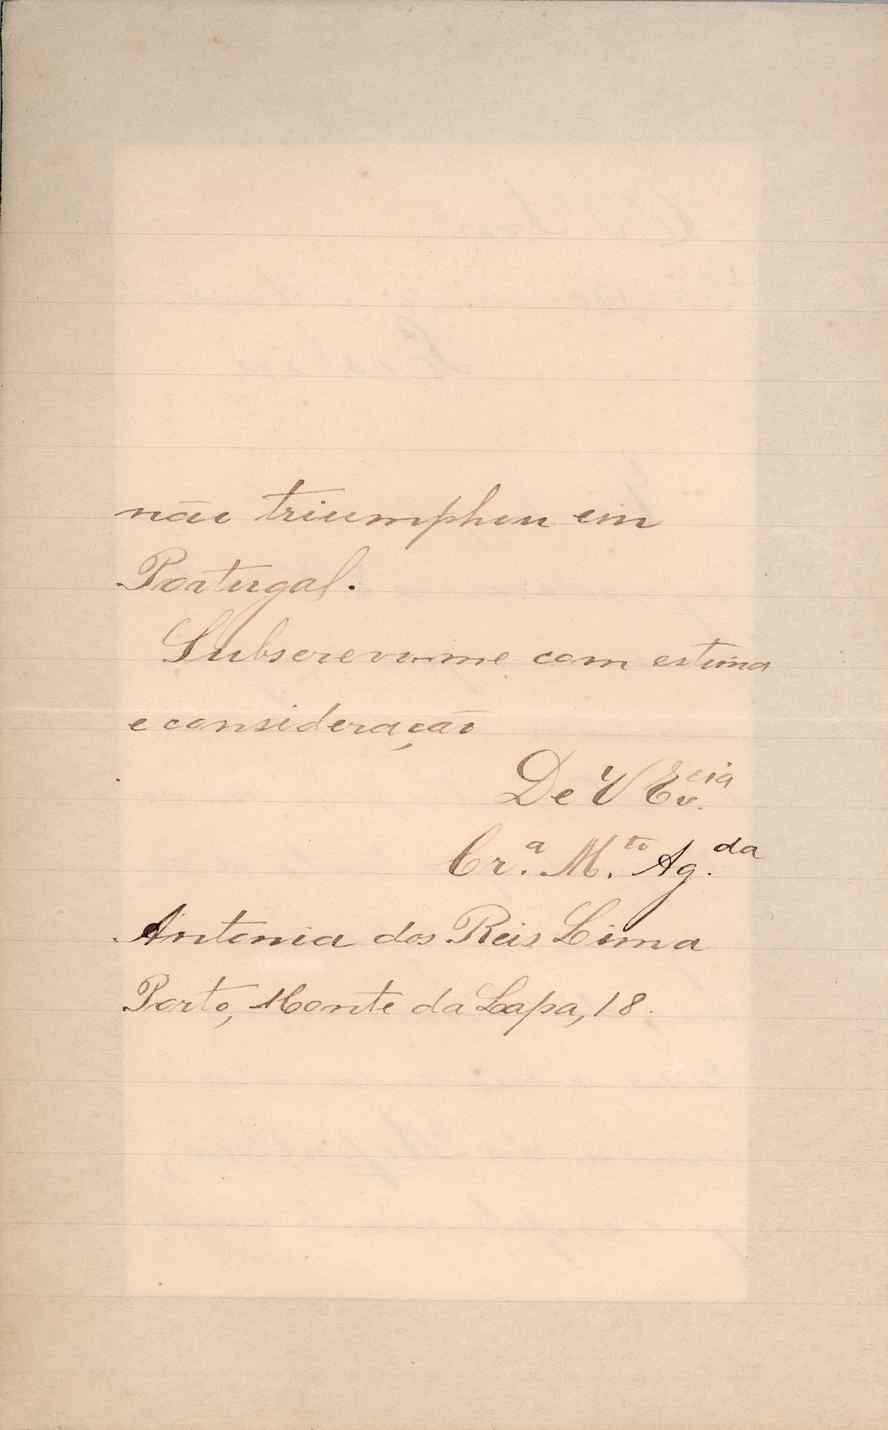 não triumphou em
Portugal.
Subscrevo-me com estima
e consideração
De V Ex.cia
Cr.a M.to Ag.da
Antonia dos Reis Lima
Porto, Monte da Lapa, 18.